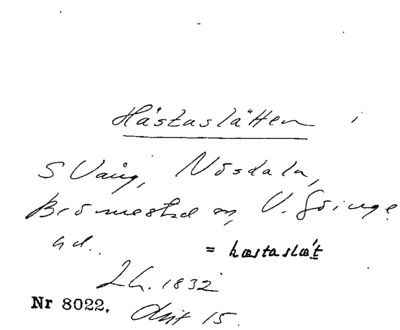 Hästaslätten i
S Vång, Nösdala,
Brönnestad sn, V. Göinge
hd.
= hæstaslæ't
Lh. 1832
Nr 8022. Akt 15.